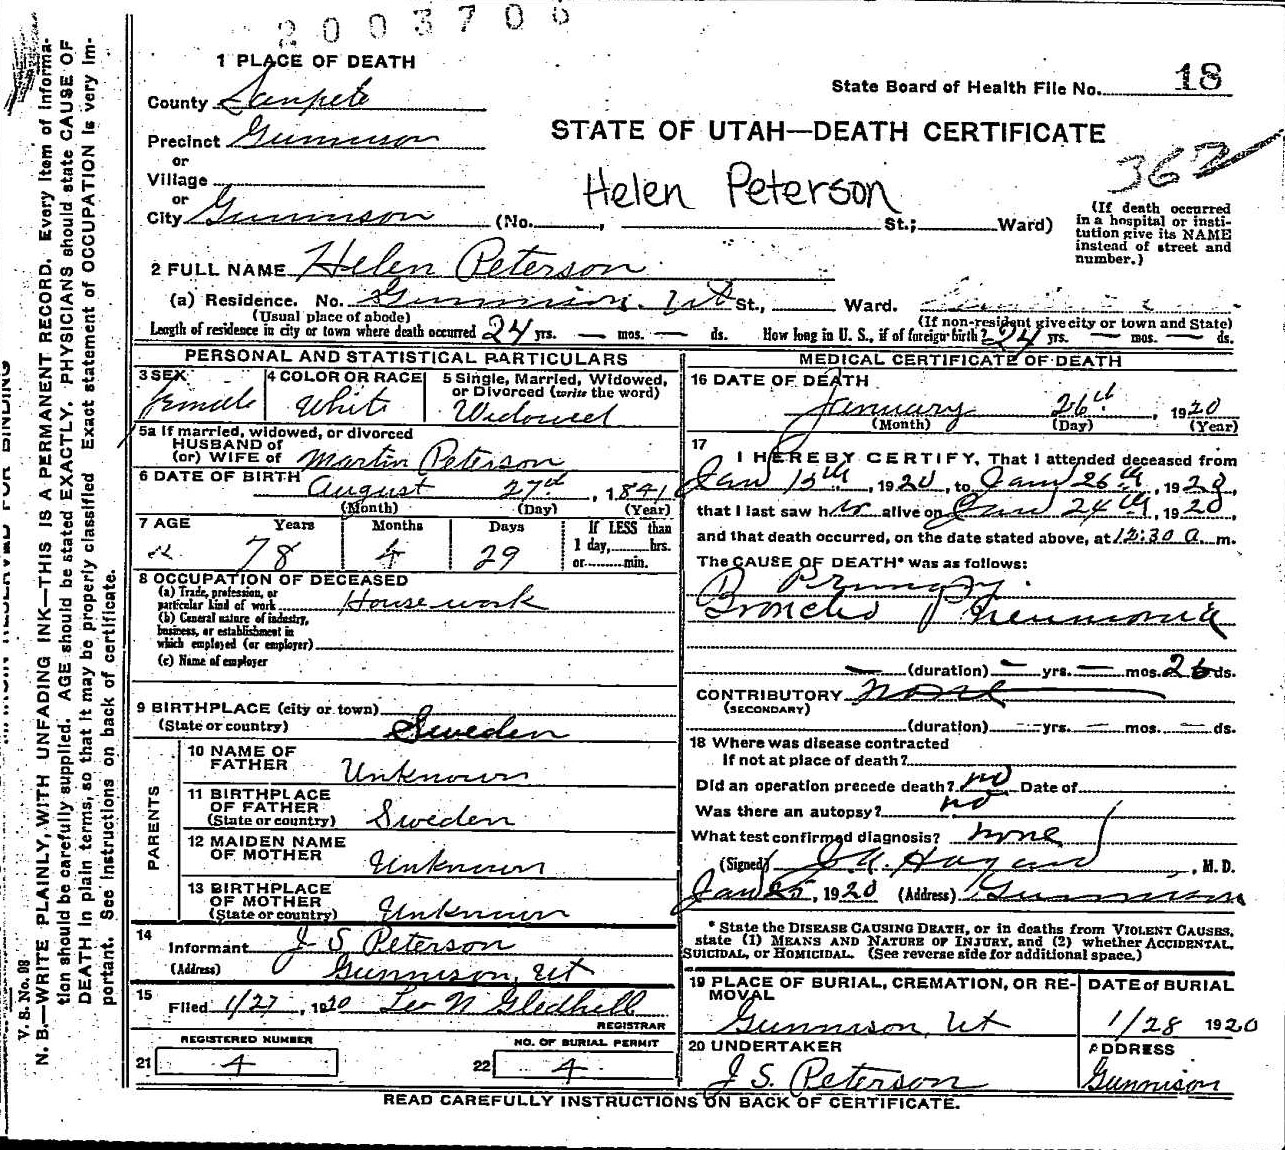 2003706
1 PLACE OF DEATH
County Sanpete
Precinct Gunnison
or
Village
or
City Gunnison (No. , St.; Ward)
State Board of Health File No. 18
STATE OF UTAH—DEATH CERTIFICATE
362
Helen Peterson
(If death occurred
in a hospital or insti-
tution give its NAME
instead of street and
number.)
2 FULL NAME Helen Peterson
(a) Residence. No. Gunnison, Ut St., Ward.
(Usual place of abode) (If non-resident give city or town and State)
Length of residence in city or town where death occurred 24 yrs. — mos. — ds. How long in U. S., if of foreign birth? 24 yrs. — mos. — ds.
PERSONAL AND STATISTICAL PARTICULARS
3 SEX
Female
4 COLOR OR RACE
White
5 Single, Married, Widowed,
or Divorced (write the word)
Widowed
5a If married, widowed, or divorced
HUSBAND of
(or) WIFE of Martin Peterson
6 DATE OF BIRTH
August 27th, 1841
(Month) (Day) (Year)
7 AGE Years Months Days If LESS than
78 4 29 1 day, hrs.
or min.
8 OCCUPATION OF DECEASED
(a) Trade, profession, or
particular kind of work House work
(b) General nature of industry,
business, or establishment in
which employed (or employer)
(c) Name of employer
9 BIRTHPLACE (city or town)
(State or country) Sweden
PARENTS
10 NAME OF
FATHER Unknown
11 BIRTHPLACE
OF FATHER
(State or country) Sweden
12 MAIDEN NAME
OF MOTHER Unknown
13 BIRTHPLACE
OF MOTHER
(State or country) Unknown
14
Informant J S Peterson
(Address) Gunnison, Ut
15
Filed 1/27, 1920 Leo N Gledhill
REGISTRAR
REGISTERED NUMBER
21 4
NO. OF BURIAL PERMIT
22 4
MEDICAL CERTIFICATE OF DEATH
16 DATE OF DEATH
January 26th, 1920
(Month) (Day) (Year)
17
I HEREBY CERTIFY, That I attended deceased from
Jan 15th, 1920, to Jan 26th, 1920,
that I last saw her alive on Jan 24th, 1920,
and that death occurred, on the date stated above, at 12:30 a m.
The CAUSE OF DEATH* was as follows:
Primary
Broncho Pneumonia
— (duration) — yrs. — mos. 26 ds.
CONTRIBUTORY none
(SECONDARY)
(duration) — yrs. — mos. — ds.
18 Where was disease contracted
If not at place of death?
Did an operation precede death? no Date of
Was there an autopsy? no
What test confirmed diagnosis? none
(Signed) J. A. Hagan, M. D.
Jan 25, 1920 (Address) Gunnison
* State the DISEASE CAUSING DEATH, or in deaths from VIOLENT CAUSES,
state (1) MEANS AND NATURE OF INJURY, and (2) whether ACCIDENTAL,
SUICIDAL, or HOMICIDAL. (See reverse side for additional space.)
19 PLACE OF BURIAL, CREMATION, OR RE-
MOVAL
Gunnison, Ut
DATE of BURIAL
1/28 1920
20 UNDERTAKER
J S. Peterson
ADDRESS
Gunnison
READ CAREFULLY INSTRUCTIONS ON BACK OF CERTIFICATE.
V. S. No. 98
N. B.—WRITE PLAINLY, WITH UNFADING INK—THIS IS A PERMANENT RECORD. Every item of informa-
tion should be carefully supplied. AGE should be stated EXACTLY. PHYSICIANS should state CAUSE OF
DEATH in plain terms, so that it may be properly classified. Exact statement of OCCUPATION is very im-
portant. See instructions on back of certificate.